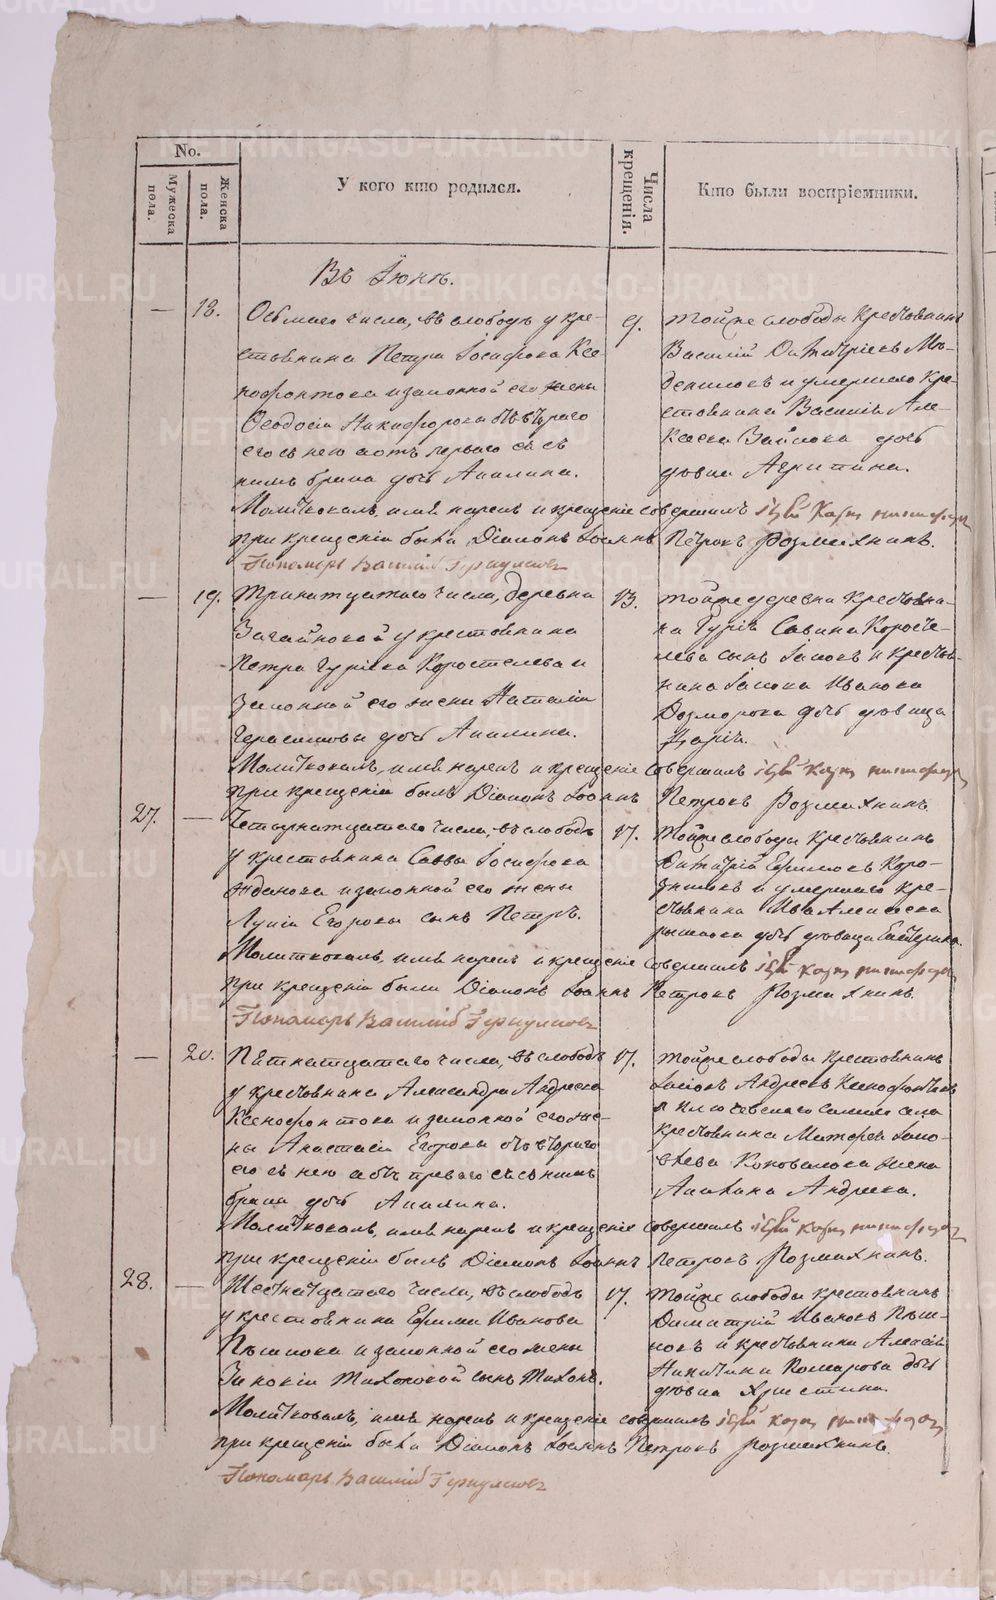 No.
Мужеска пола.
Женска пола.
У кого кто родился.
Числа крещенія.
Кто были воспріемники.
Въ Іюнѣ.
— 18. Осьмаго числа, въ слободѣ у кре-
стьянина Петра Іосифова Ксе-
нофонтова и законной его жены
Ѳеодосіи Никифоровой
его съ нею а отъ перваго съ съ
нимъ брака дочь Акилина.
9. Тойже слободы Крестьянинъ
Василій Димитріевъ
и умершаго Кре-
стьянина Василія Але-
ксѣева дочь
дѣвица Агрипина.
Молитвовалъ, имя нарекъ и крещеніе совершилъ
при крещеніи были Діаконъ Іоаннъ Петровъ Розмахнинъ.
Пономарь Василій
— 19. Тринатцатаго числа, деревни
у крестьянина
Петра Гуріева Коростелева и
Законной его жены Наталіи
Герасимовы дочь Акилина.
13. Тойже деревни Крестьяни-
на Гурія Савина Коросте-
лева сынъ Іаковъ и крестья-
нина Іакова Иванова
Дозморова дочь дѣвица
Дарія.
Молитвовалъ, имя нарекъ и крещеніе совершилъ
при крещеніи былъ Діаконъ Іоаннъ Петровъ Розмахнинъ
27. — Четырнатцатаго числа, въ слободѣ
у крестьянина Саввы Іосифова
Жданова и законной его жены
Лукіи Егоровы сынъ Петръ.
17. Тойже слободы Крестьянинъ
Димитрій Ефимовъ
и умершаго кре-
стьянина
дочь дѣвица Екатерина.
Молитвовалъ, имя нарекъ и крещеніе совершилъ
при крещеніи были Діаконъ Іоаннъ Петровъ Розмахнинъ.
Пономарь Василій
— 20. Пятнатцатаго числа, въ слободѣ
у крестьянина Александра Андреева
Ксенофонтова и законной его же-
ны Анастасіи Егоровы
его съ нею а отъ перваго съ съ нимъ
брака дочь Акилина.
17. Тойже слободы Крестьянинъ
Іаковъ Андреевъ Ксенофонтовъ
села
крестьянина Матфея
Коновалова жена
Акилина Андреева.
Молитвовалъ, имя нарекъ и крещеніе совершилъ
при крещеніи былъ Діаконъ Іоаннъ Петровъ Розмахнинъ.
28. — Шестнатцатаго числа, въ слободѣ
у крестьянина Ефима Иванова
и законной его жены
Тихоновой сынъ Тихонъ.
17. Тойже слободы крестьянинъ
Димитрій Ивановъ
и крестьянина Алексѣя
Никитина Комарова дочь
дѣвица Христина.
Молитвовалъ, имя нарекъ и крещеніе совершилъ
при крещеніи были Діаконъ Іоаннъ Петровъ Розмахнинъ.
Пономарь Василій